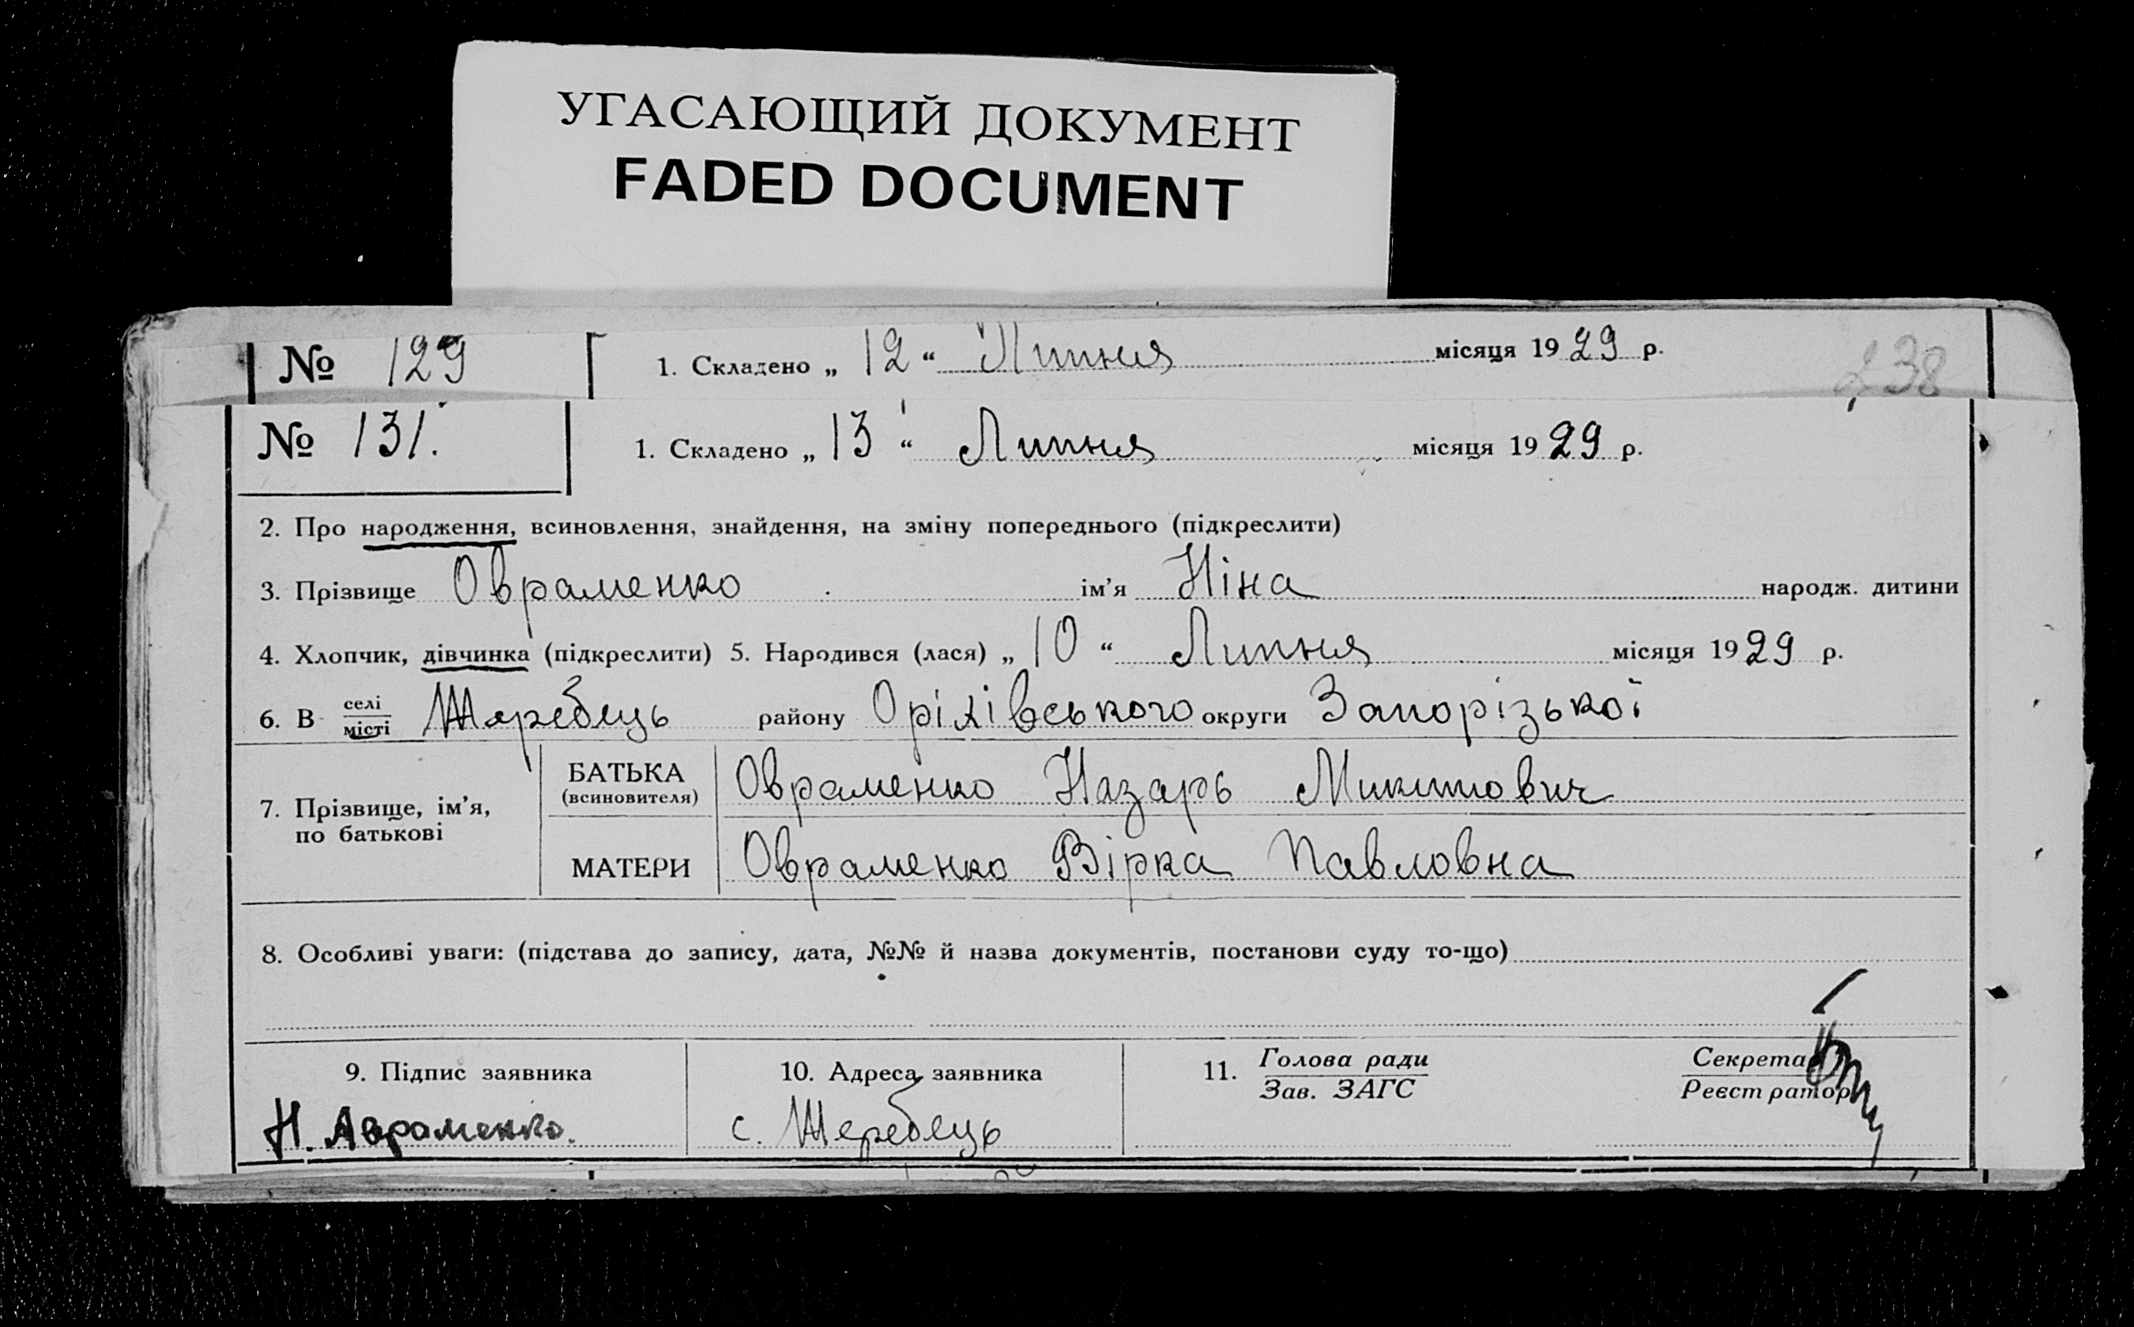 УГАСАЮЩИЙ ДОКУМЕНТ
FADED DOCUMENT
№ 129 1. Складено „ 12 “ Липня місяця 1929 р.
238
№ 131. 1. Складено „ 13 “ Липня місяця 1929 р.
2. Про народження, всиновлення, знайдення, на зміну попереднього (підкреслити)
3. Прізвище Овраменко ім’я Ніна народж. дитини
4. Хлопчик, дівчинка (підкреслити) 5. Народився (лася) „ 10 “ Липня місяця 1929 р.
6. В селі місті Жеребець району Оріхівського округи Запорізької
7. Прізвище, ім’я, по батькові
БАТЬКА (всиновителя) Овраменко Назарь Микитович
МАТЕРИ Овраменко Вірка Павловна
8. Особливі уваги: (підстава до запису, дата, №№ й назва документів, постанови суду то-що)
9. Підпис заявника 10. Адреса заявника 11. Голова ради Зав. ЗАГС Секретар Реєстратор
Н. Авраменко. с. Жеребець